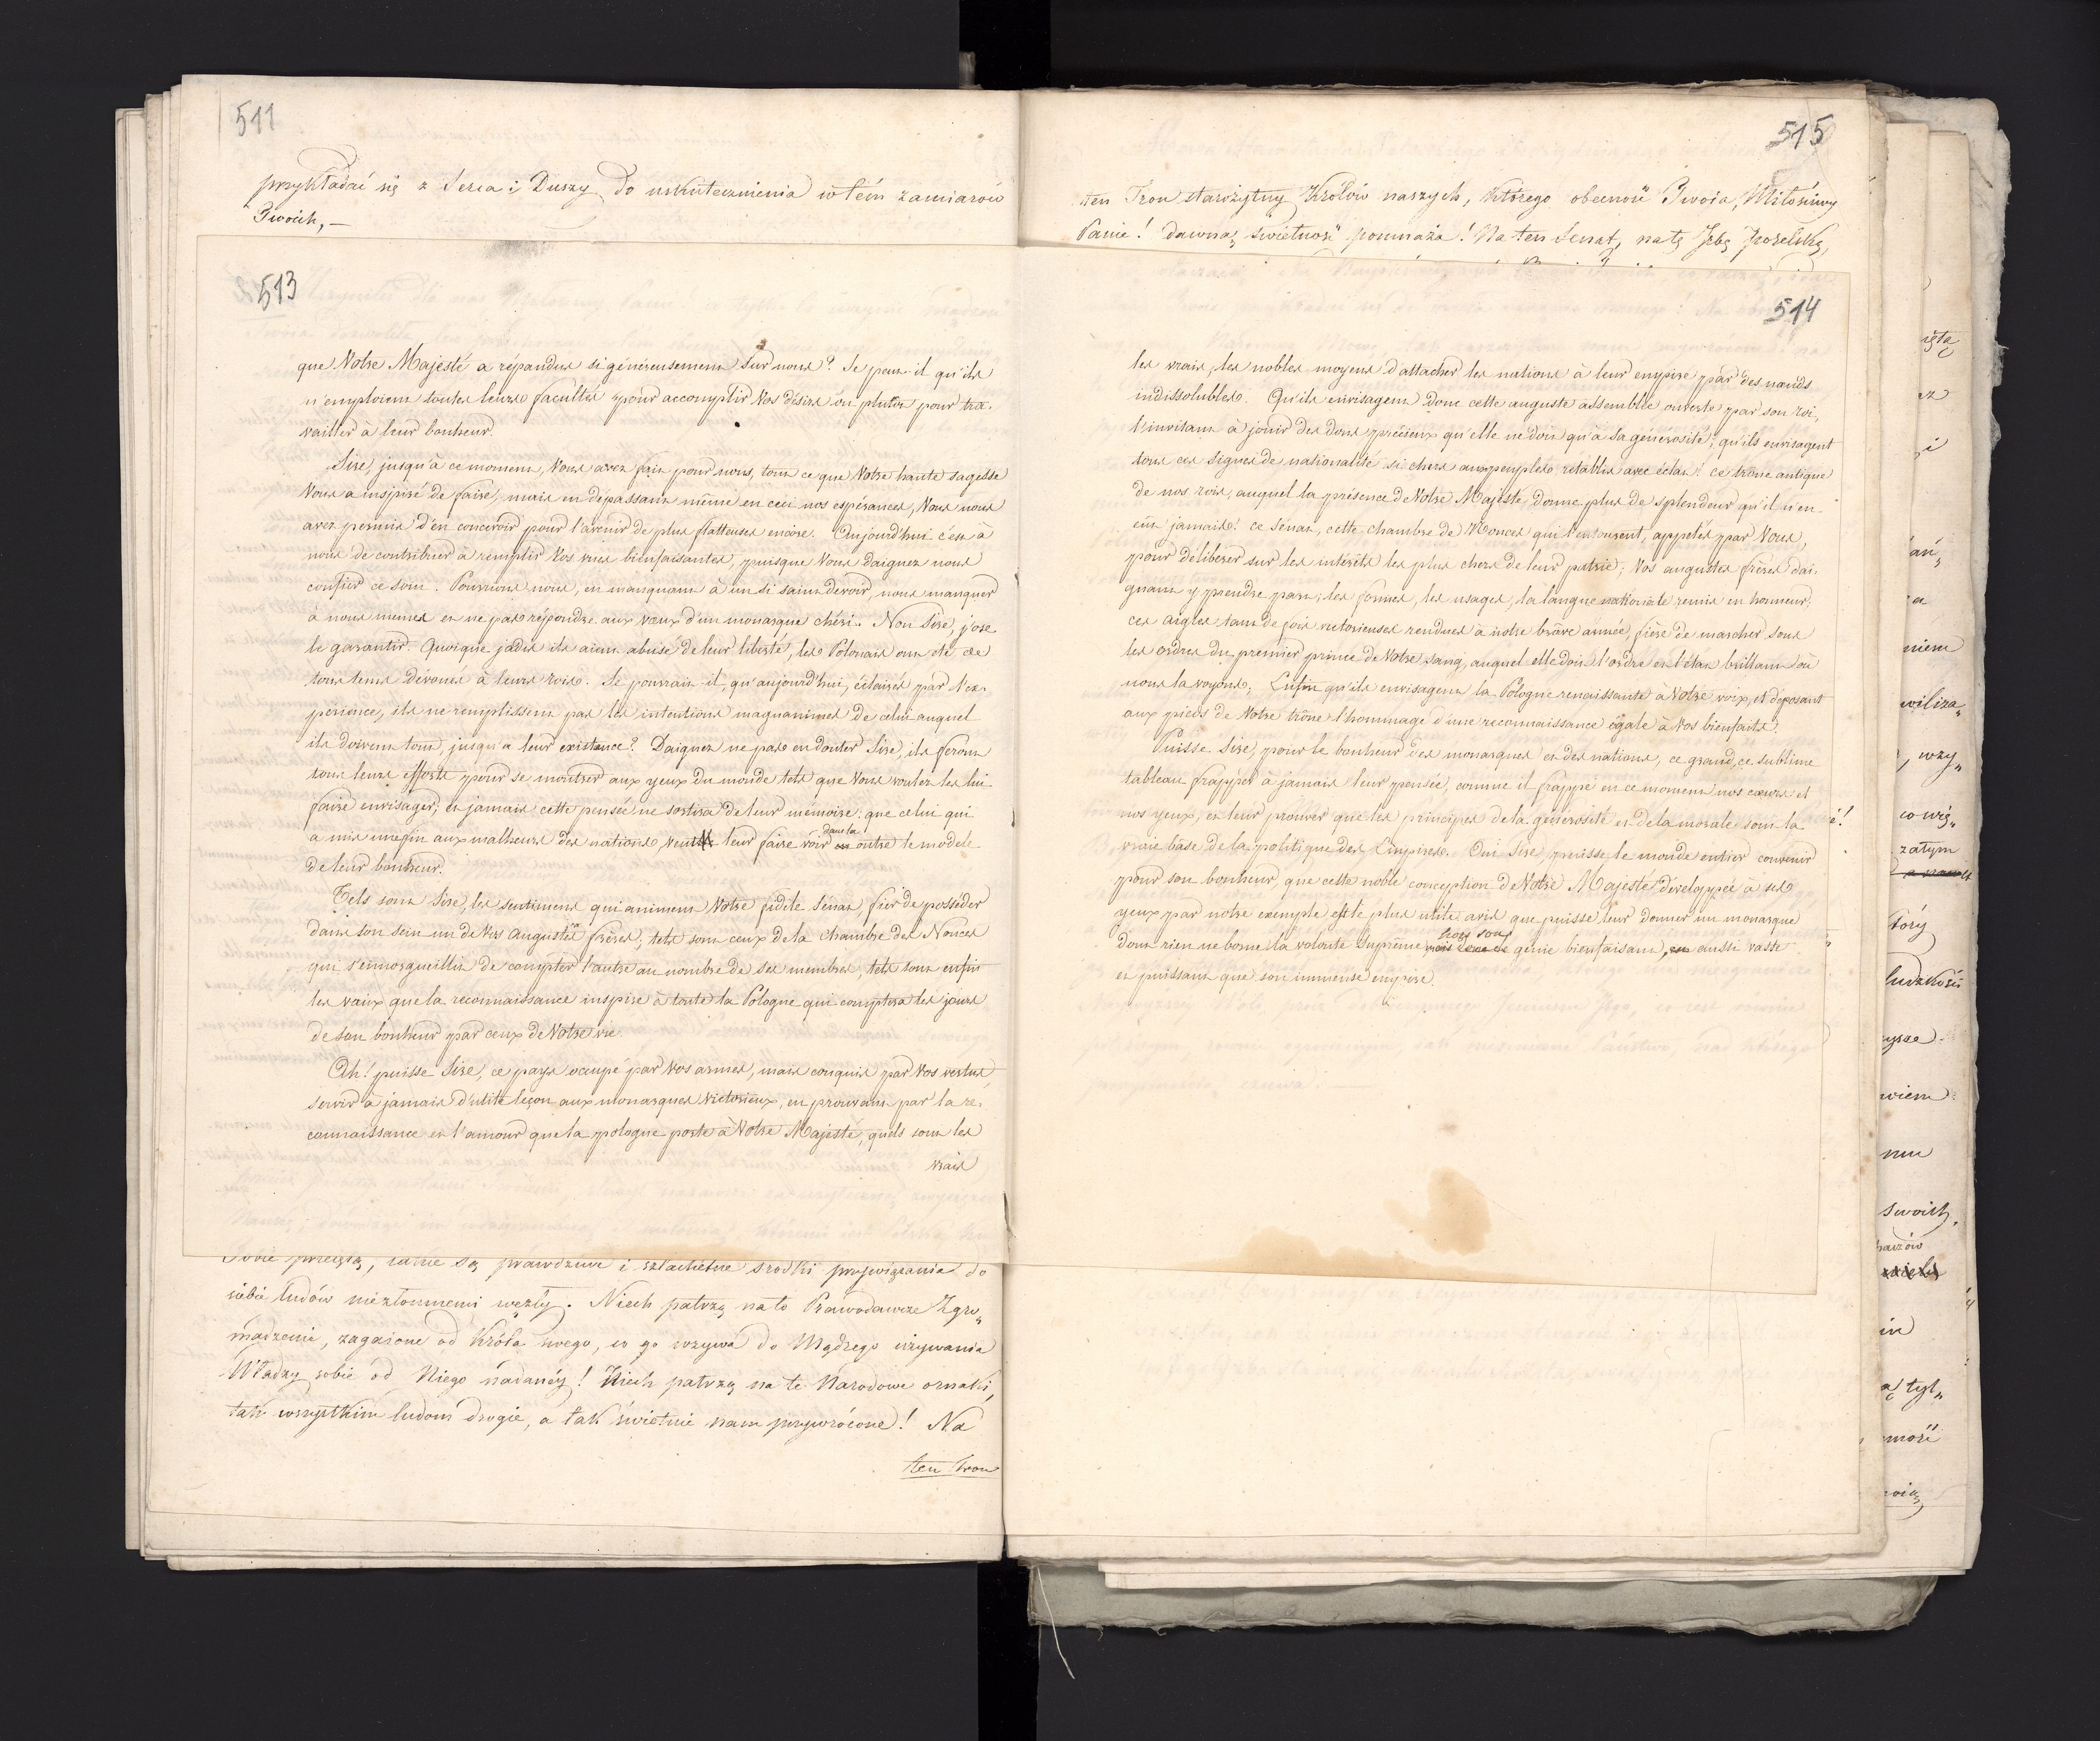 511
przykładać się z Serca i Duszy do uskutecznienia w tém zamiarów
Twoich, —
513
que Votre Majesté a répandus si généreusement sur nous? Se peut-il qu'ils
n'emploient toutes leurs facultés pour accomplir Vos désirs ou plutôt pour tra-
vailler à leur bonheur.
Sire, jusqu'à ce moment, Vous avez fait pour nous, tout ce que Votre haute sagesse
Vous a inspiré de faire, mais en dépassant même en ceci nos espérances, Vous nous
avez permis d'en concevoir pour l'avenir de plus flatteuses encore. Aujourd'hui c'est à
nous de contribuer à remplir Vos vues bienfaisantes, puisque Vous daignez nous
confier ce soin. Pourrions nous, en manquant à un si saint devoir, nous manquer
à nous memes et ne pas répondre aux vœux d'un monarque chéri. Non Sire, j'ose
le garantir. Quoique jadis ils aient abusé de leur liberté, les Polonais ont été de
tous tems dévoués à leurs rois. Se pourrait-il, qu'aujourd'hui, éclairés par l'ex-
périence, ils ne remplissent pas les intentions magnanimes de celui auquel
ils doivent tout, jusqu'a leur existence? Daignez ne pas en douter Sire, ils feront
tous leurs efforts pour se montrer aux yeux du monde tels que Vous voulez les lui
faire envisager; et jamais cette pensée ne sortira de leur mémoire: que celui qui
a mis une fin aux malheurs des nations veut leur faire voir en outre le modèle
dans la
de leur bonheur.
Tels sont Sire, les sentimens qui animent Votre fidèle Sénat, fier de posséder
dans son sein un de Vos augustes frères; tels sont ceux de la chambre des Nonces
qui s'enorgueillit de compter l'autre au nombre de ses membres, tels sont enfin
les vœux que la reconnaissance inspire à toute la Pologne qui comptera les jours
de son bonheur par ceux de Votre vie.
Ah! puisse Sire, ce pays occupé par Vos armes, mais conquis par Vos vertus,
servir à jamais d'utile leçon aux monarques victorieux, en prouvant par la re-
connaissance et l'amour que la pologne porte à Votre Majesté, quels sont les
vrais
Tobie przeięta, iakie są prawdziwe i szlachetne srodki przywiązania do
siebie ludów niezłomnemi węzły. Niech patrzą na to Prawodawcze Zgro„
madzenie, zagaione od Króla swego, co go wzywa do Mądrego używania
Władzy sobie od Niego nadanéy! Niech patrzą na te Narodowe oznaki,
tak wszystkim ludom drogie, a tak świetnie nam przywrócone! Na
ten Tron
515
ten Tron starożytny Królów naszych, którego obecność Twoia, Miłościwy
Panie! dawną świetność pomnaża! Na ten Senat, na tę Jzbę Poselską,
514
les vrais, les nobles moyens d'attacher les nations à leur empire par des nœuds
indissolubles. Qu'ils envisagent donc cette auguste assemblée ouverte par son roi,
l'invitant à jouir des dons précieux qu'elle ne doit qu'à Sa générosité; qu'ils envisagent
tous ces signes de nationalité si chers aux peuples, rétablis avec éclat! ce trône antique
de nos rois, auquel la présence de Votre Majesté donne plus de splendeur qu'il n'en
eût jamais! ce Sénat, cette chambre de Nonces qui l'entourent, appelés par Vous,
pour délibérer sur les intérêts les plus chers de leur patrie; Vos augustes frères dai-
gnant y prendre part; les formes, les usages, la langue nationale remis en honneur;
ces aigles tant de fois victorieuses rendues à notre brave armée, fière de marcher sous
les ordres du premier prince de Votre sang, auquel elle doit l'ordre et l'état brillant où
nous la voyons; Enfin qu'ils envisagent la Pologne renaissante à Votre voix, et deposant
aux pieds de Votre trône l'hommage d'une reconnaissance égale à Vos bienfaits.
Puisse Sire, pour le bonheur des monarques et des nations, ce grand, ce sublime
tableau frapper à jamais leur pensée, comme il frappe en ce moment nos cœurs et
nos yeux, et leur prouver que les principes de la générosité et de la morale sont la
vraie base de la politique des Empires. Oui Sire, puisse le monde entier convenir
pour son bonheur, que cette noble conception de Votre Majesté développée à ses
yeux par notre exemple est le plus utile avis que puisse leur donner un monarque
dont rien ne borne la volonté Suprême génie bienfaisant, aussi vaste
hors son
et puissant que son immense empire.
niem
wiliza„
, wzy„
co wię„
zatym
tóry
ludzkości
wiem
swoich,
ą tyl„